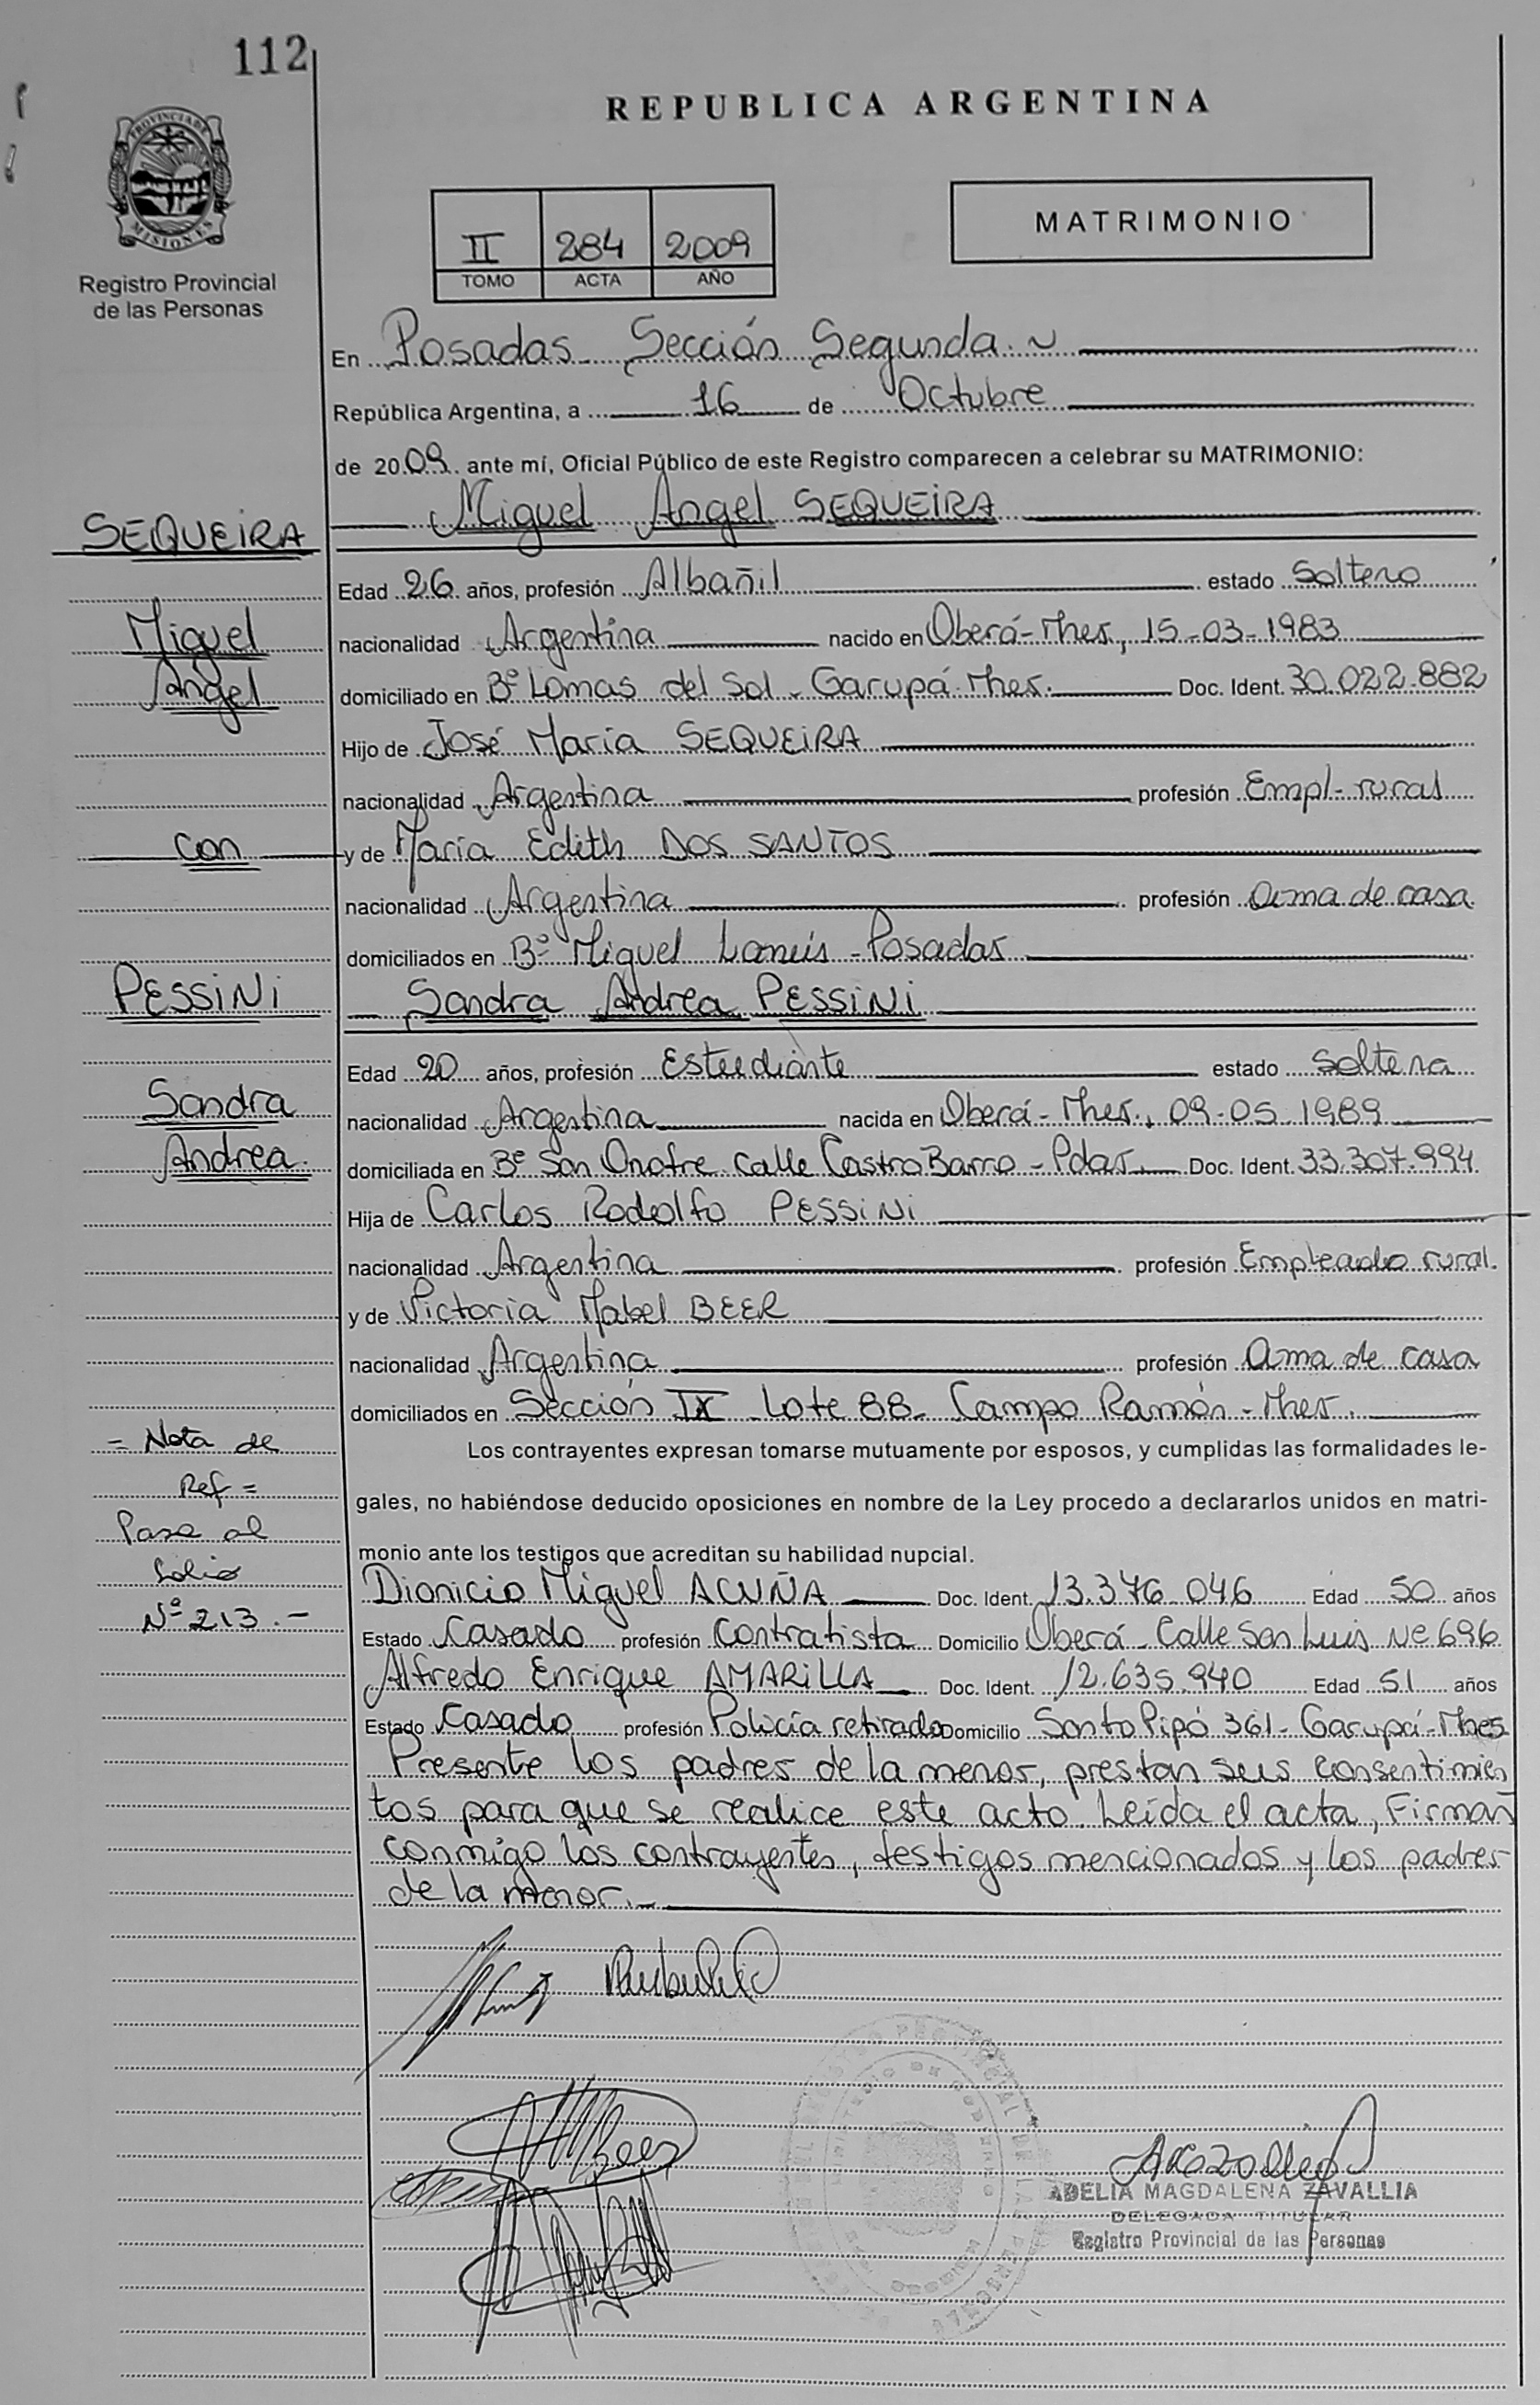 112
REPUBLICA ARGENTINA
PROVINCIA DE
MISIONES
Registro Provincial
de las Personas
MATRIMONIO
II 284 2009
TOMO ACTA AÑO
En Posadas Sección Segunda.
República Argentina, a 16 de Octubre
de 2009. ante mí, Oficial Público de este Registro comparecen a celebrar su MATRIMONIO:
Miguel Angel SEQUEIRA
SEQUEIRA
Edad 26 años, profesión Albañil estado Soltero
Miguel
nacionalidad Argentina nacido en Oberá-Mnes, 15-03-1983
Angel
domiciliado en Bº Lomas del Sol - Garupá-Mnes. Doc. Ident. 30.022.882
Hijo de José Maria SEQUEIRA
nacionalidad Argentina profesión Empl-rural
con
y de María Edith DOS SANTOS
nacionalidad Argentina profesión Ama de casa
domiciliados en Bº Miguel Lanús - Posadas
PESSiNi
Sandra Andrea PESSiNi
Edad 20 años, profesión Estudiante estado Soltera
Sandra
nacionalidad Argentina nacida en Oberá-Mnes., 09-05-1989
Andrea.
domiciliada en Bº San Onofre calle Castro Barro - Pdas. Doc. Ident. 33.307.994
Hija de Carlos Rodolfo PESSiNi
nacionalidad Argentina profesión Empleado rural.
y de Victoria Mabel BEER
nacionalidad Argentina profesión Ama de casa
domiciliados en Sección IX Lote 88- Campo Ramón-Mnes.
= Nota de
Ref =
Pase al
folio
Nº 213.-
Los contrayentes expresan tomarse mutuamente por esposos, y cumplidas las formalidades le-
gales, no habiéndose deducido oposiciones en nombre de la Ley procedo a declararlos unidos en matri-
monio ante los testigos que acreditan su habilidad nupcial.
Dionicio Miguel ACUÑA Doc. Ident. 13.376.046 Edad 50 años
Estado Casado profesión Contratista Domicilio Oberá - Calle San Luis Nº 696
Alfredo Enrique AMARiLLA Doc. Ident. 12.635.940 Edad 51 años
Estado Casado profesión Policía retirado Domicilio Santo Pipó 361- Garupá-Mnes
Presente los padres de la menor, prestan sus consentimien
tos para que se realice este acto. Leída el acta, Firman
conmigo los contrayentes, testigos mencionados y los padres
de la menor.-
ADELIA MAGDALENA ZAVALLIA
DELEGADA TITULAR
Registro Provincial de las Personas